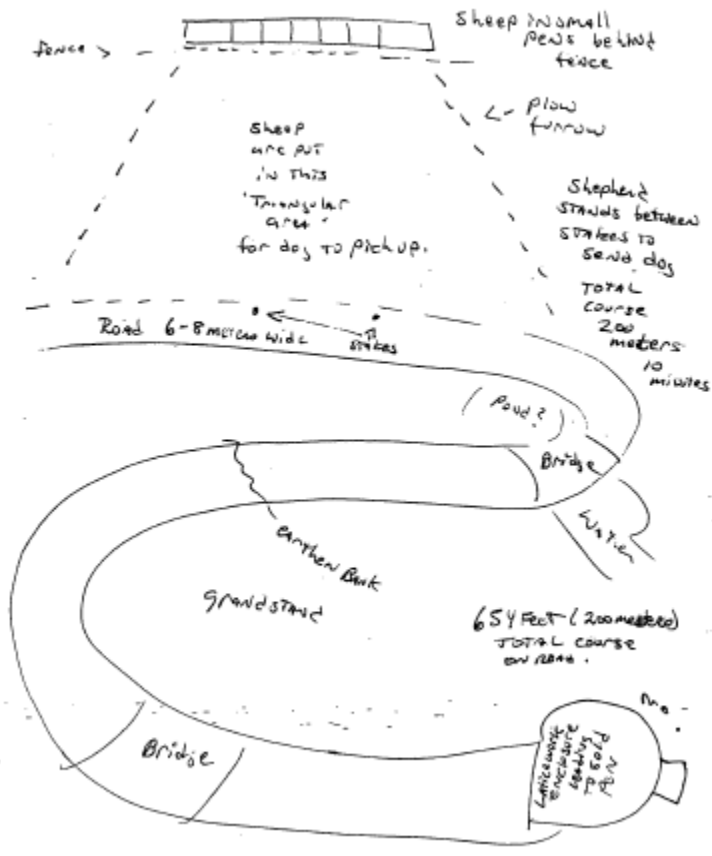 Sheep in small
pens behind
fence
fence >
<- Plow
furrow
sheep
are put
in This
"Triangular
area"
for dog to pick up.
Shepherd
STANDS between
STAKES TO
Send dog
TOTAL
COURSE
200
meters
10
minutes
Road 6-8 meters wide
STAKES
(Pond?)
Bridge
Water
earthen Bank
Grandstand
654 Feet (200 meters)
TOTAL COURSE
ON ROAD.
Bridge
Laticework
enclosure
Leading
TO
Pen